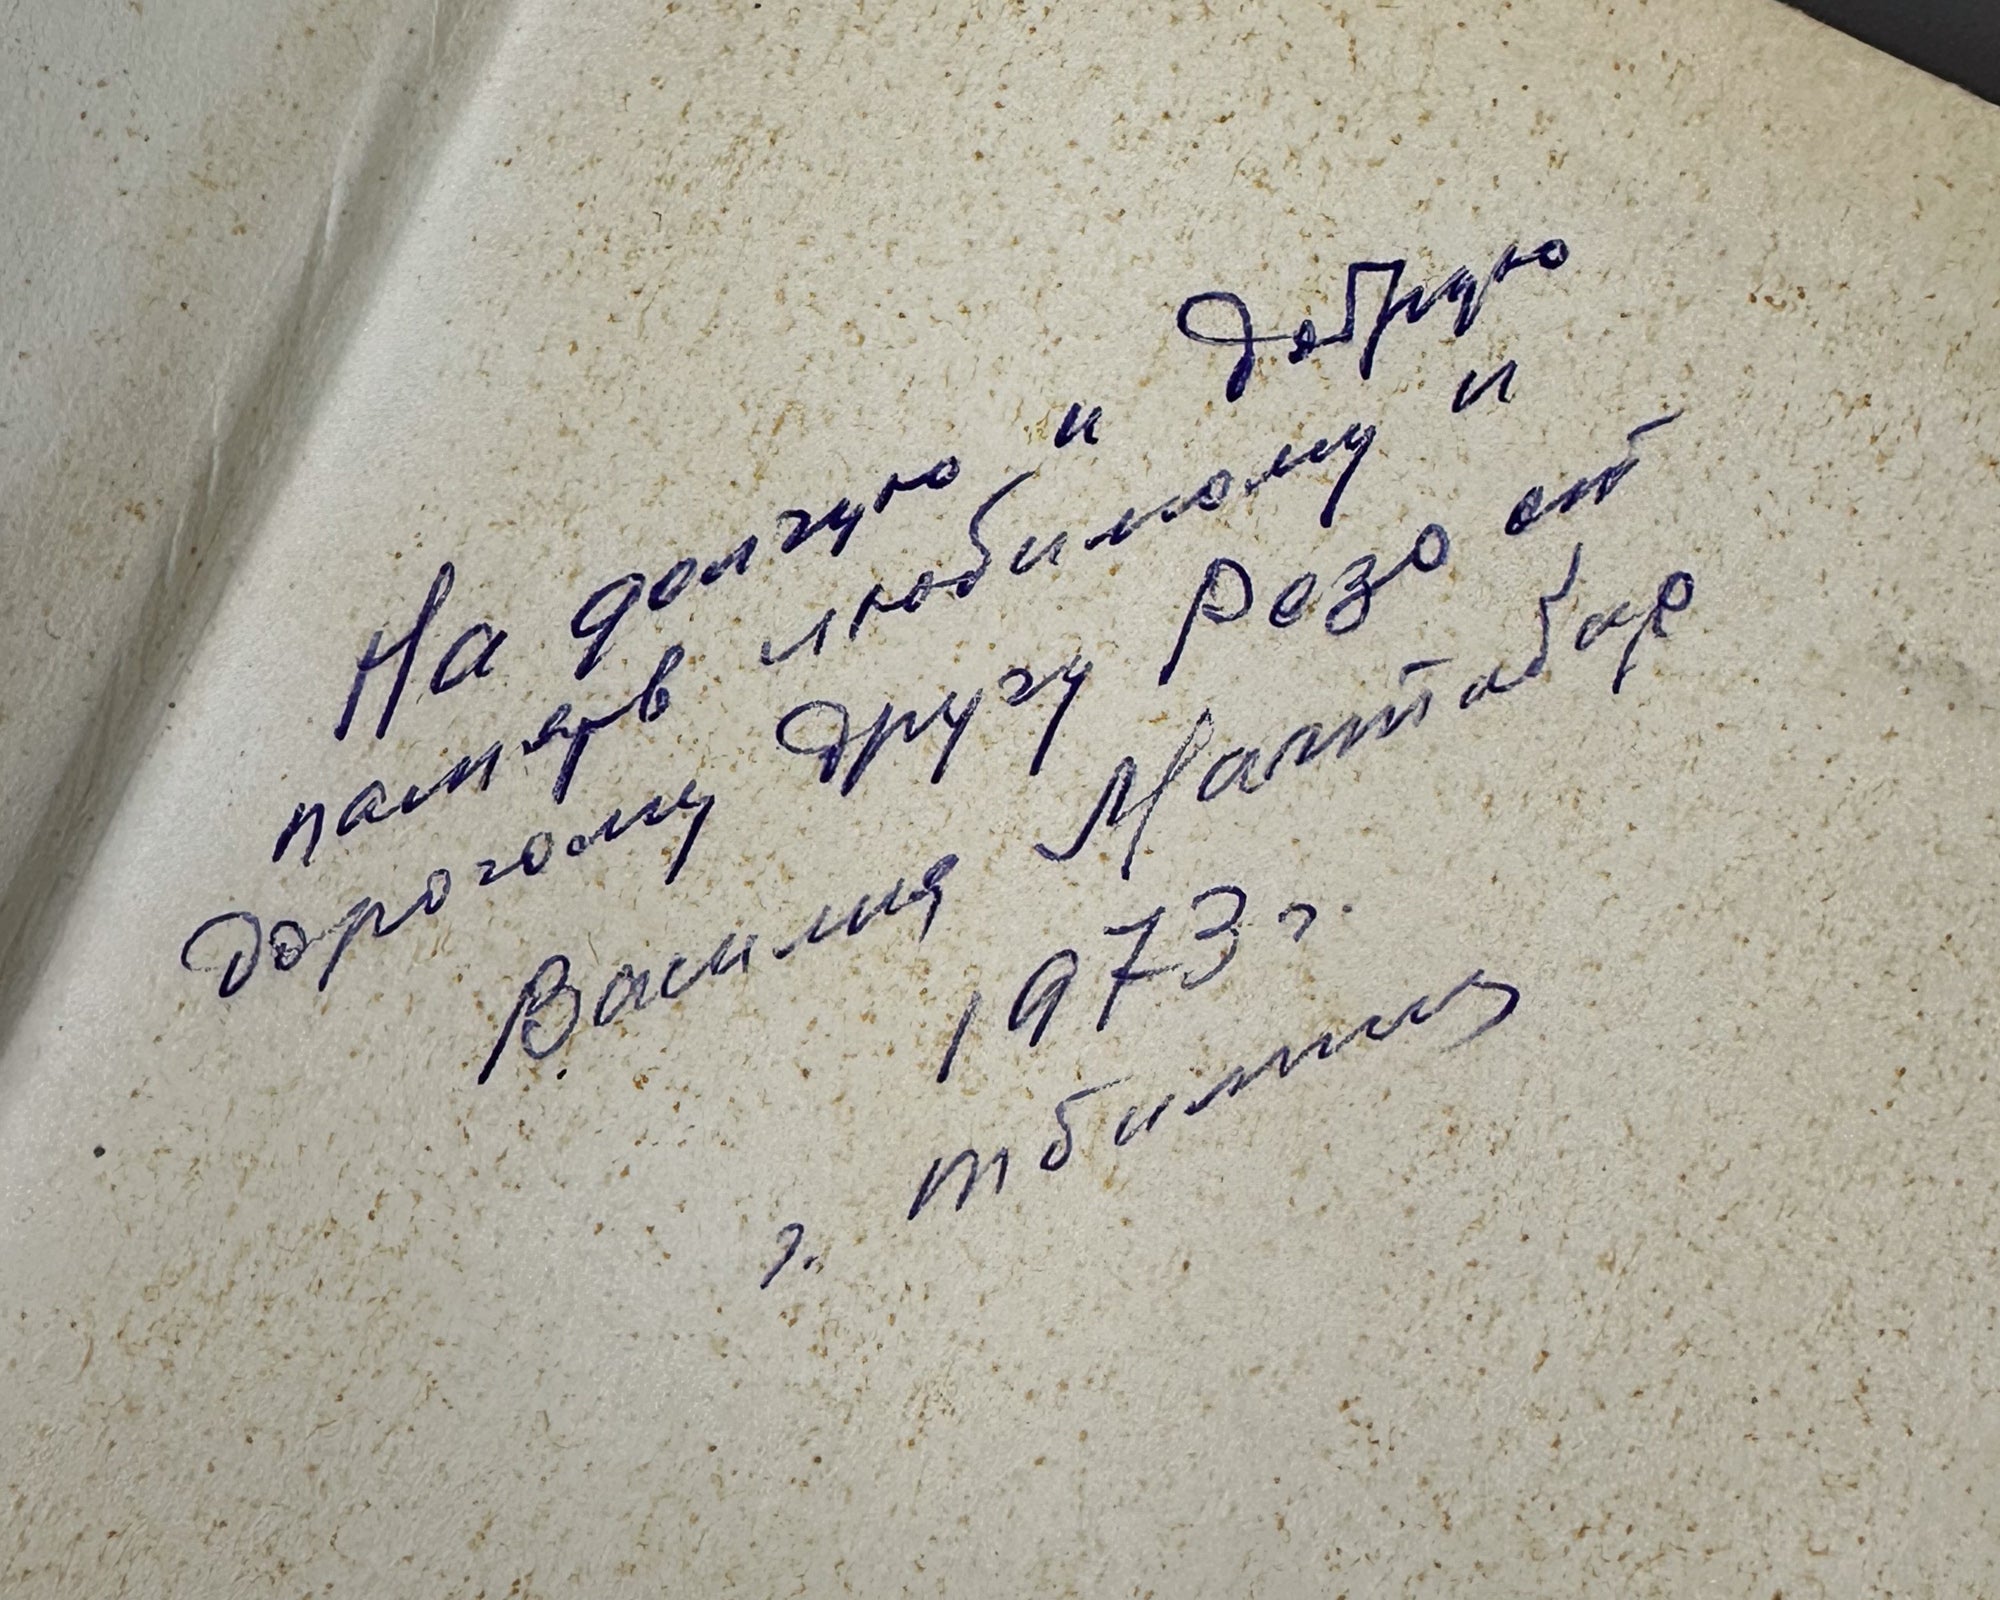 На долгую и добрую
память любимому и
дорогому другу Резо от
Василия
1973 г.
г. Тбилиси